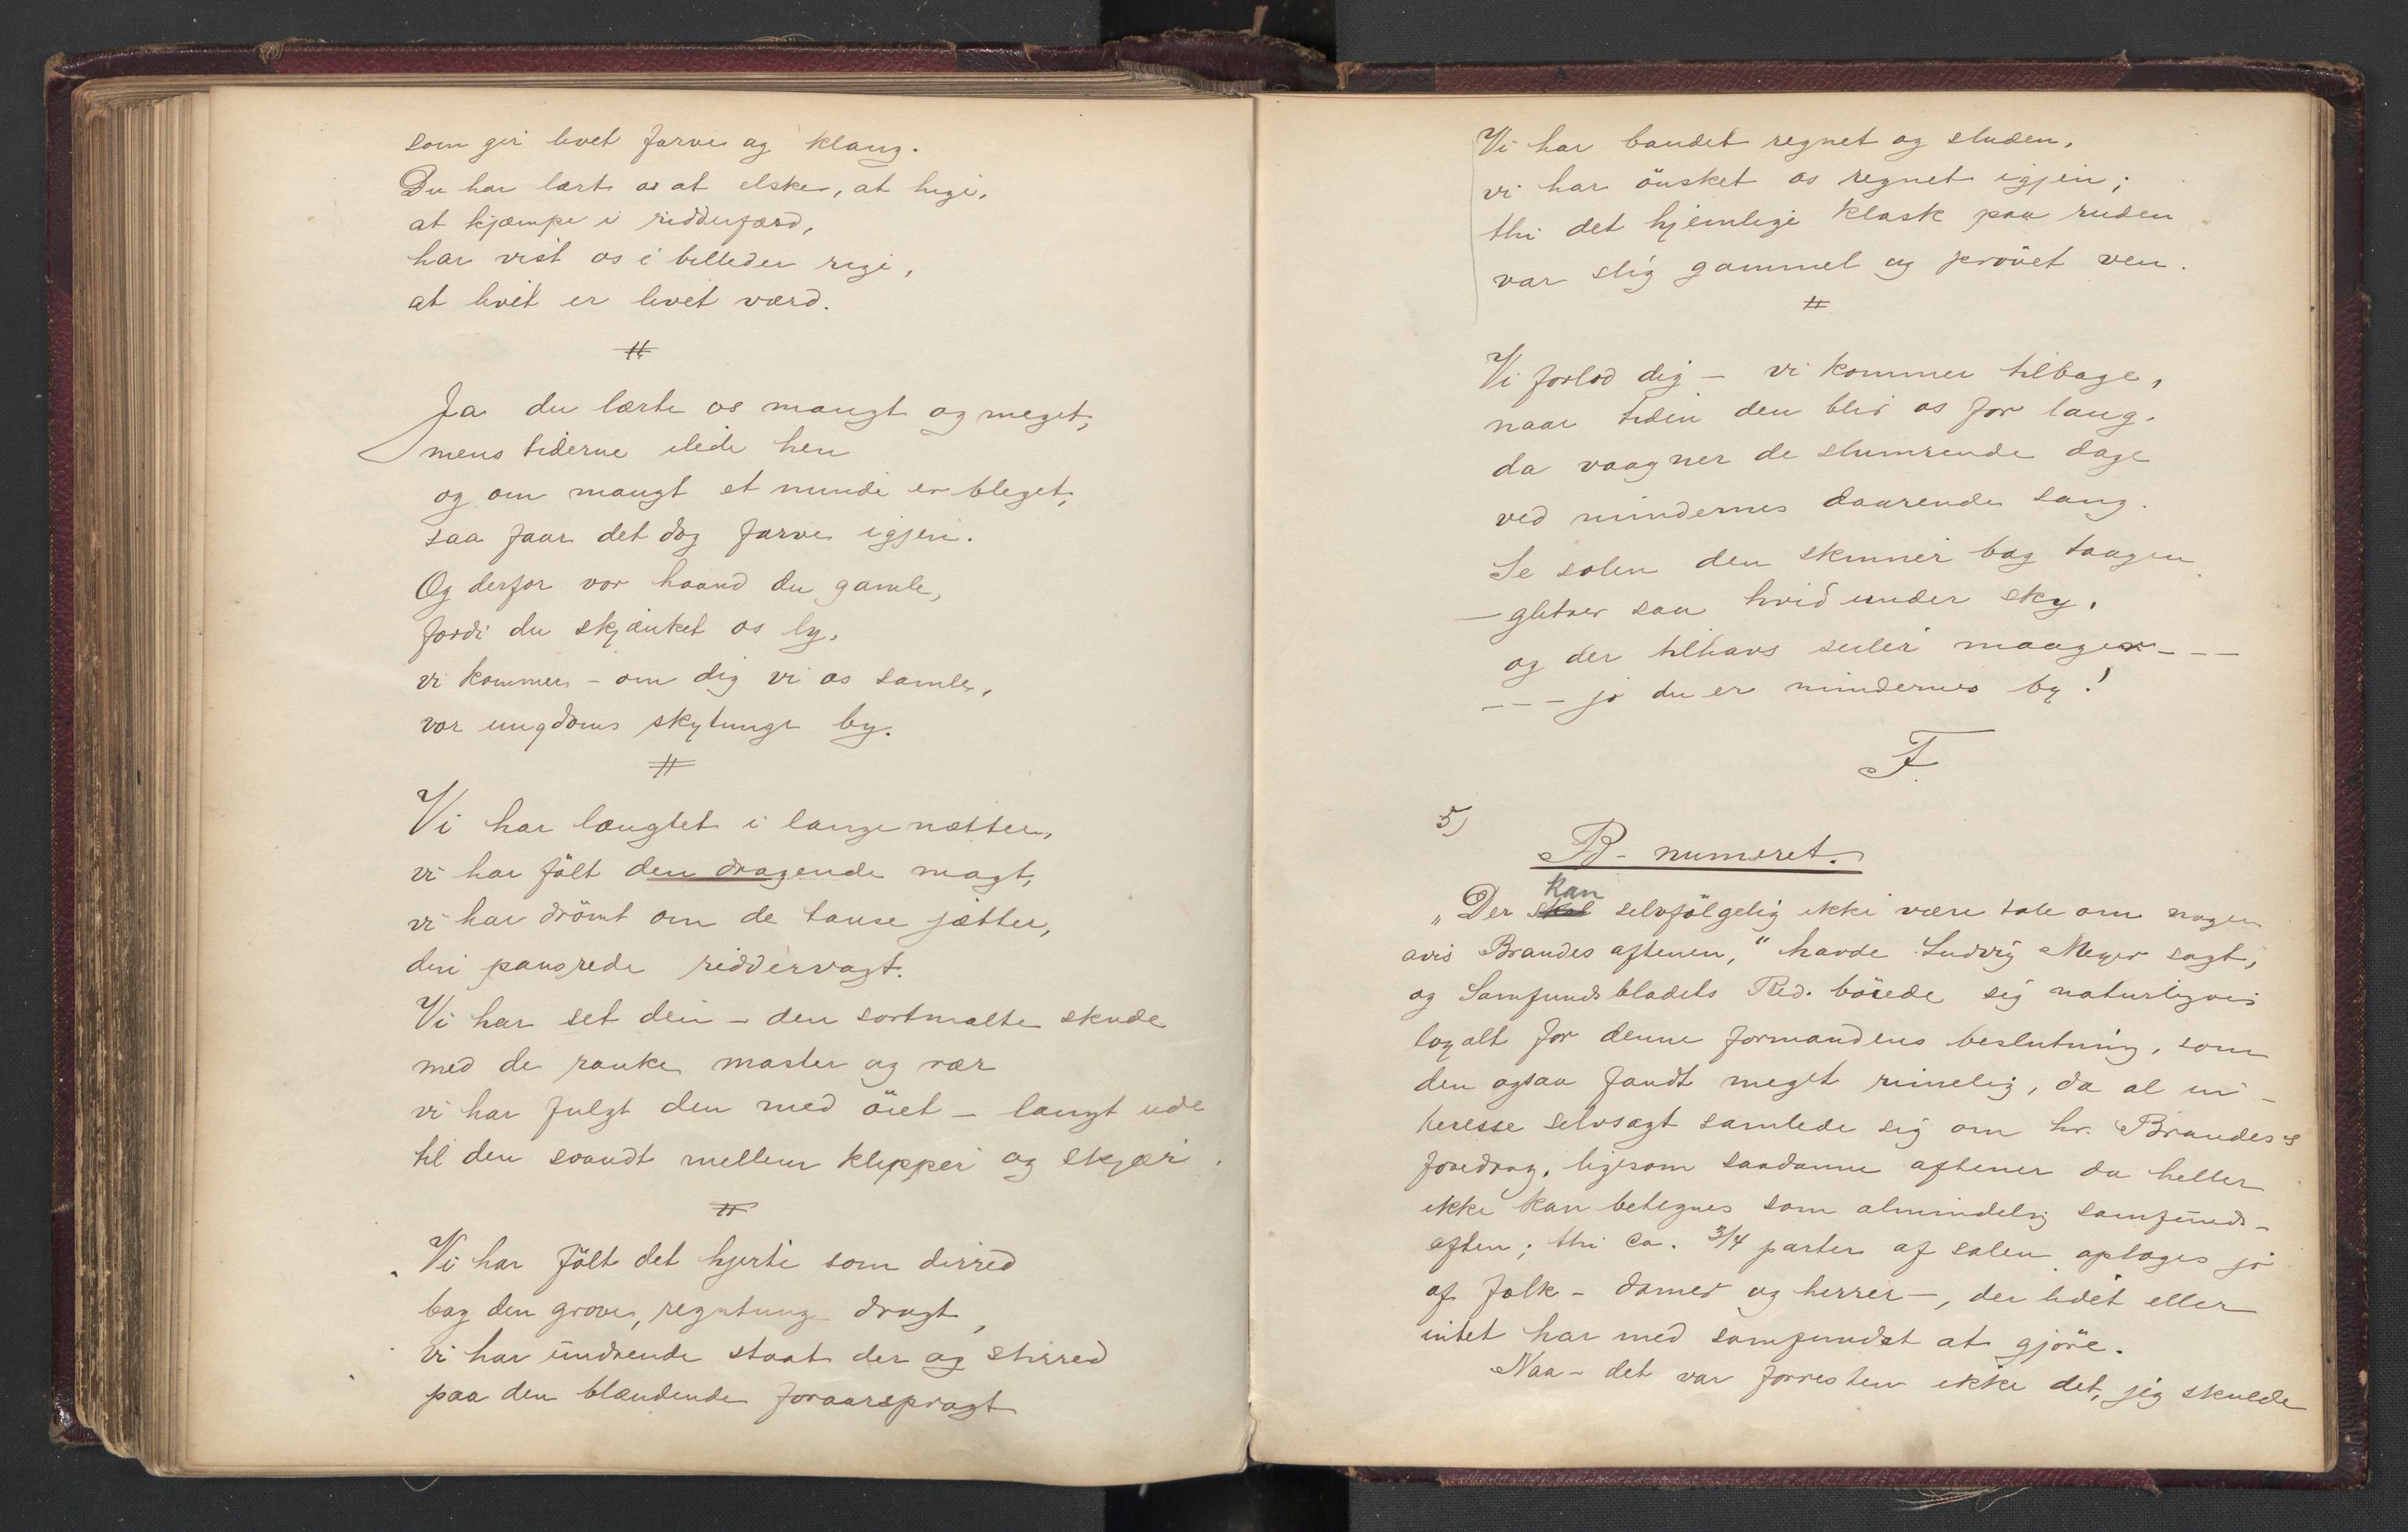 som gir livet farve og klang.
Du har lært os at elske, at hige,
at kjæmpe i ridderfærd,
har vist os i billeder rige,
at livet er livet værd.
#
Ja du lærte os mangt og meget,
mens tiderne ilede hen
og om mangt et minde er bleget,
saa faar det dog farve igjen.
Og derfor vor haand du gamle,
fordi du skjænket os ly,
vi kommer – om dig vi os samler,
vor ungdoms skytunge by.
#
Vi har længtet i lange nætter,
vi har fölt den dragende magt,
vi har drömt om de tause jætter,
din pansrede riddervagt.
Vi har set den – den sortmalte skude
med de ranke master og rær
vi har fulgt den med öiet – langt ude
til den svandt mellem klipper og skjær.
#
Vi har fölt det hjerte som dirred
bag den grove, regntunge dragt,
vi har undrende staat der og stirred
paa den blændende foraarspragt
Vi har bandet regnet og sluden,
vi har önsket os regnet igjen;
thi det hjemlige klask paa ruden
var slig gammel og prövet ven.
#
Vi forlod dig – vi kommer tilbage,
naar tiden den blir os for lang,
da vaagner de slumrende dage
ved mindernes daarende sang.
Se solen den skinner bag taagen
– glitrer saa hvid under sky,
og der tilhavs seiler maagen – – –
– – – jo du er mindernes by!
F.
5)
B-numeret.
kan
„Der skal selvfölgelig ikke være tale om nogen
avis Brandes aftenen,“ havde Ludvig Meyer sagt,
og Samfundsbladets Red. böiede sig naturligvis
loyalt for denne formandens beslutning, som
den ogsaa fandt meget rimelig, da al in-
teresse selvsagt samlede sig om hr. Brandes's
foredrag, ligesom saadanne aftener da heller
ikke kan betegnes som almindelig samfunds-
aften; thi ca. 3/4 parten af salen optages jo
af folk – damer og herrer –, der lidet eller
intet har med samfundet at gjöre.
Naa – det var forresten ikke det, jeg skulde